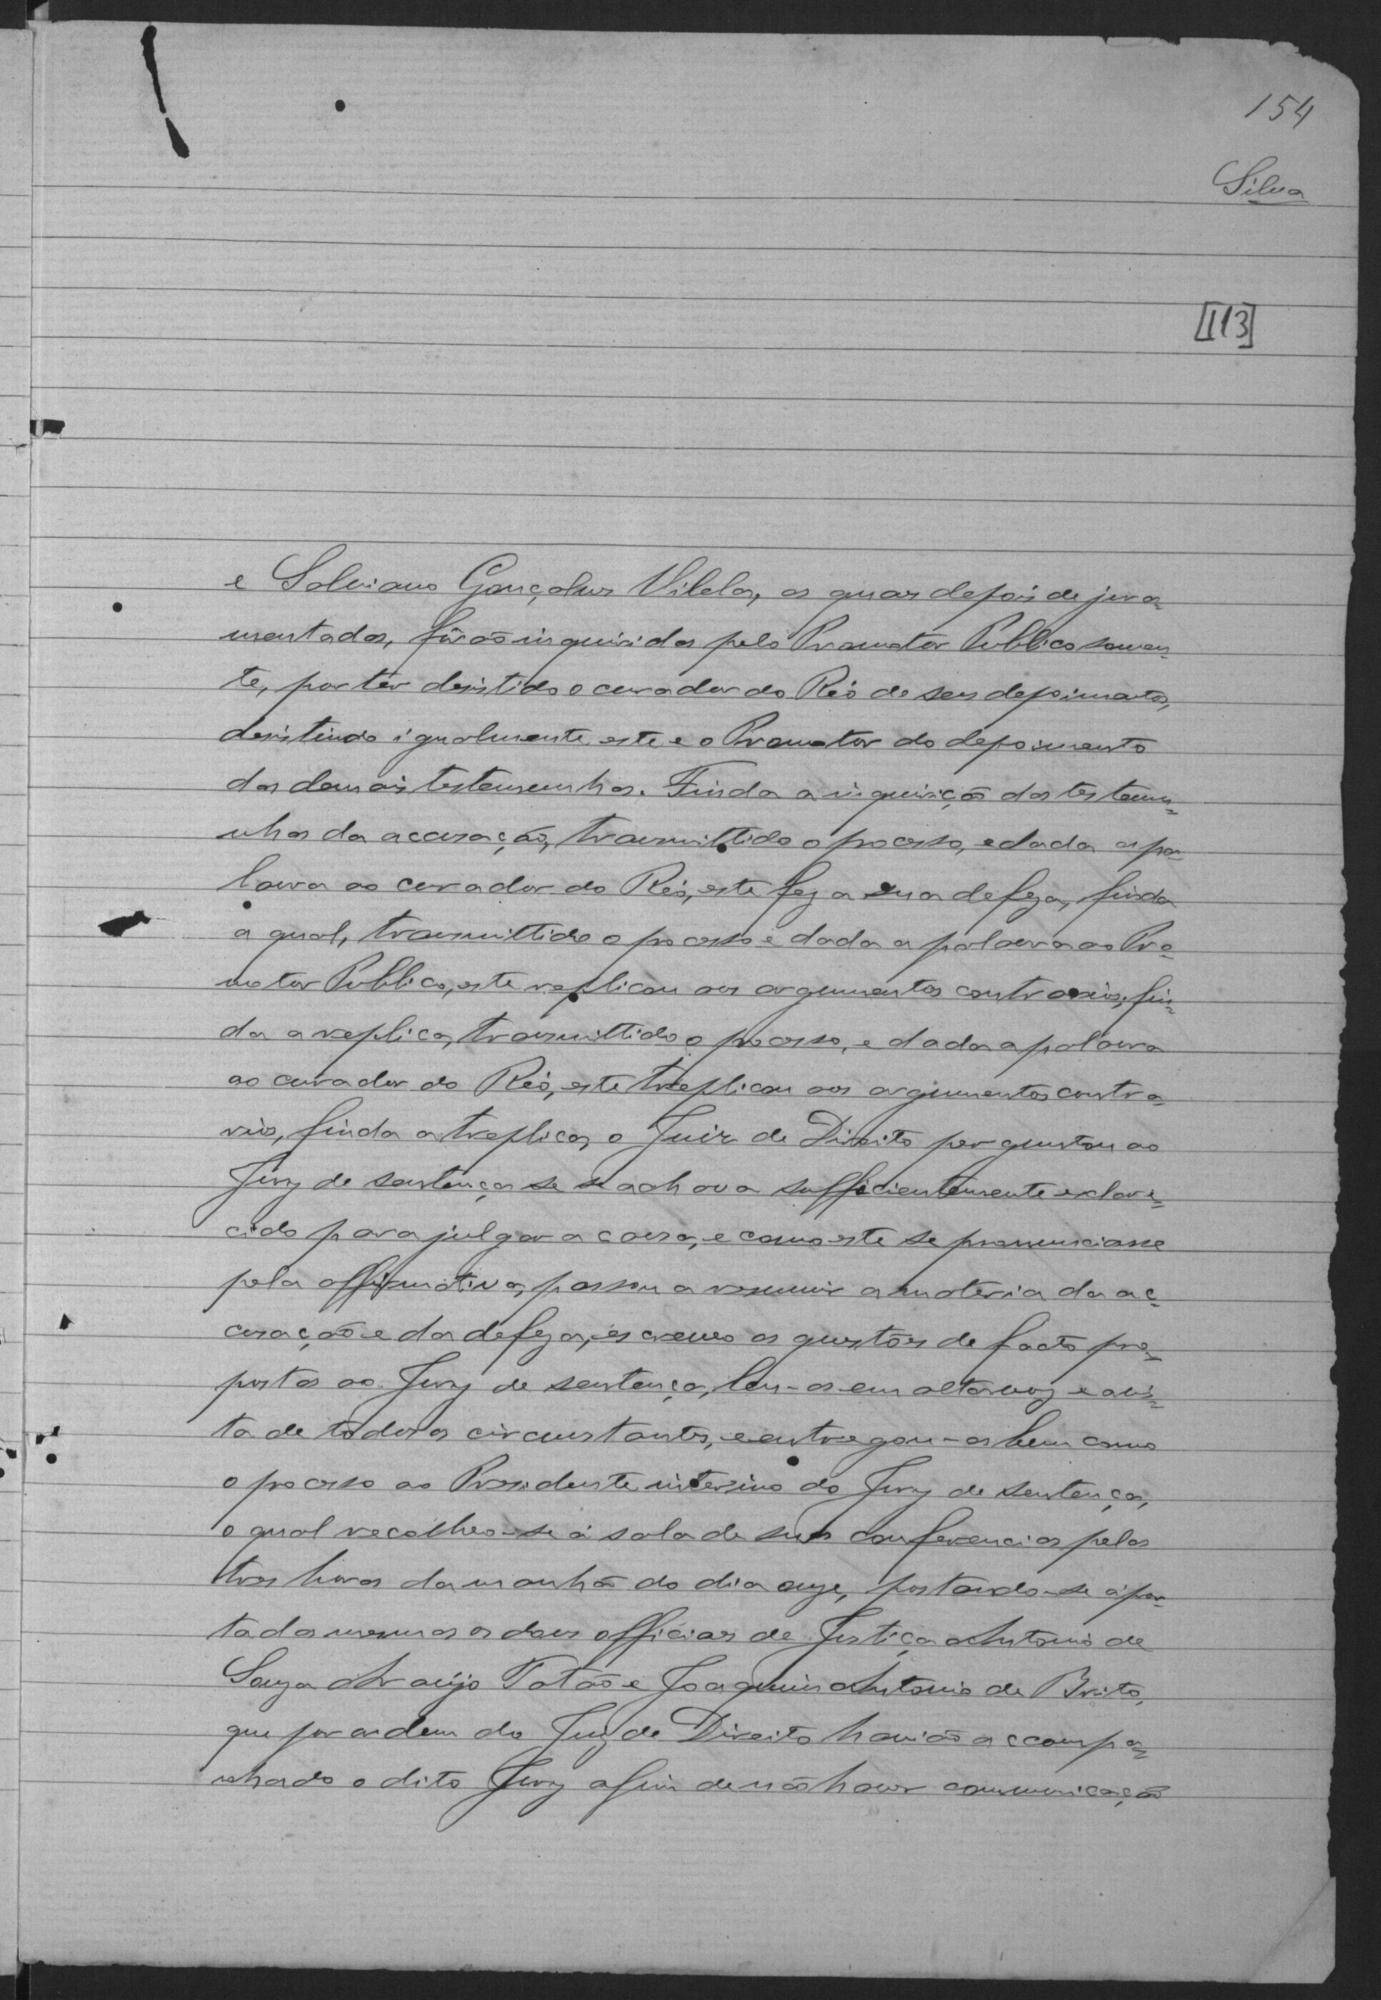 154
Silva
[113]
e Salviano Gonçalves Vilela, os quaes depois de jura-
mentados, fôrão inquiridos pelo Promotor Publico somen-
te, por ter desistido o curador do Réo de seus depoimentos,
desistindo igualmente este e o Promotor do depoimento
das demais testemunhas. Finda a inquirição das testemu-
nhas da accusação, transmittido o processo, e dada a pa-
lavra ao curador do Réo, este fez a sua defeza, finda
a qual, transmittido o processo e dada a palavra ao Pro-
motor Publico, este replicou aos argumentos contrarios, fin-
da a replica, transmittido o processo, e dada a palavra
ao curador do Réo, este treplicou aos argumentos contra-
rios, finda a treplica, o Juiz de Direito perguntou ao
Jury de sentença se se achava sufficientemente esclare-
cido para julgar a causa, e como este se pronunciasse
pela affirmativa, passou a resumir a materia da ac-
cusação e da defeza, escreveo as questões de facto pro-
postas ao Jury de sentença, leu-as em alta voz e a vis-
ta de todos os circunstantes, e entregou-as bem como
o processo ao Presidente interino do Jury de sentença,
o qual recolheo-se á sala de suas conferencias pelas
tres horas da manhã do dia onze, postando-se á por-
ta da mesma os dous officiaes de Justiça Antonio de
Souza Araujo Tatão e Joaquim Antonio de Brito,
que por ordem do Juiz de Direito havião accompa-
nhado o dito Jury afim de não haver communicação